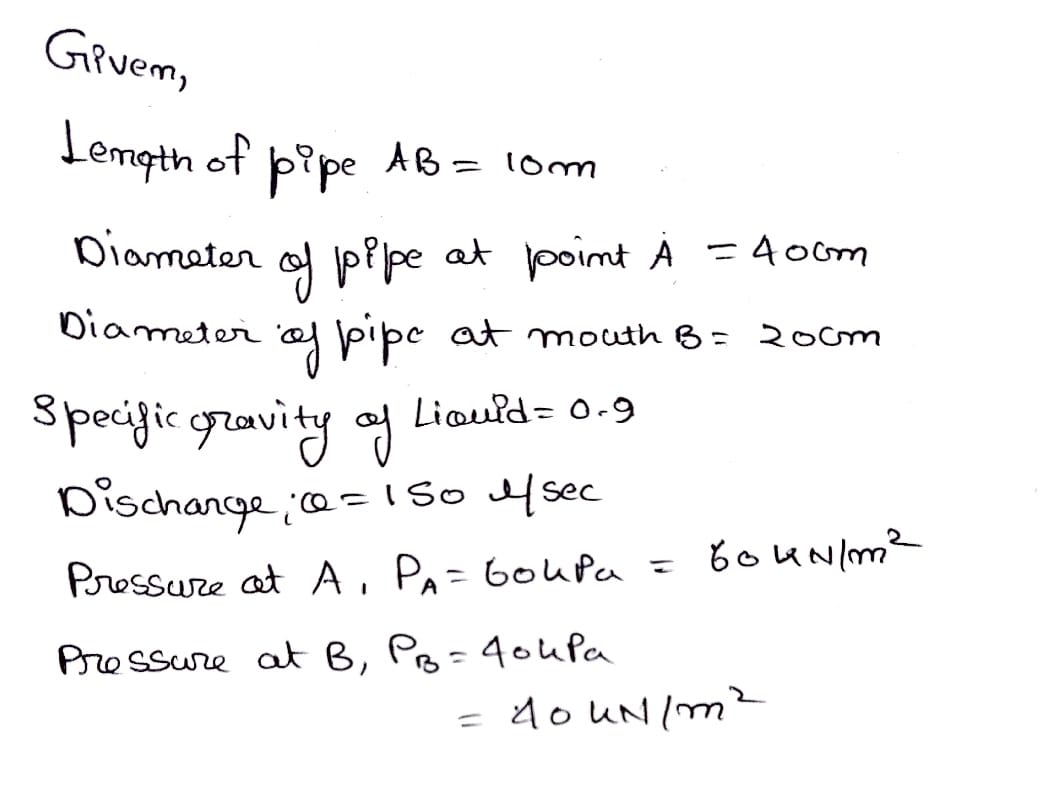 Given,
Length of pipe AB = 10m
Diameter of pipe at point A = 40cm
Diameter of pipe at mouth B = 20cm
Specific gravity of Liquid = 0.9
Discharge, Q = 150 l/sec
Pressure at A, P_A = 60kPa = 60 kN/m²
Pressure at B, P_B = 40kPa
= 40 kN/m²